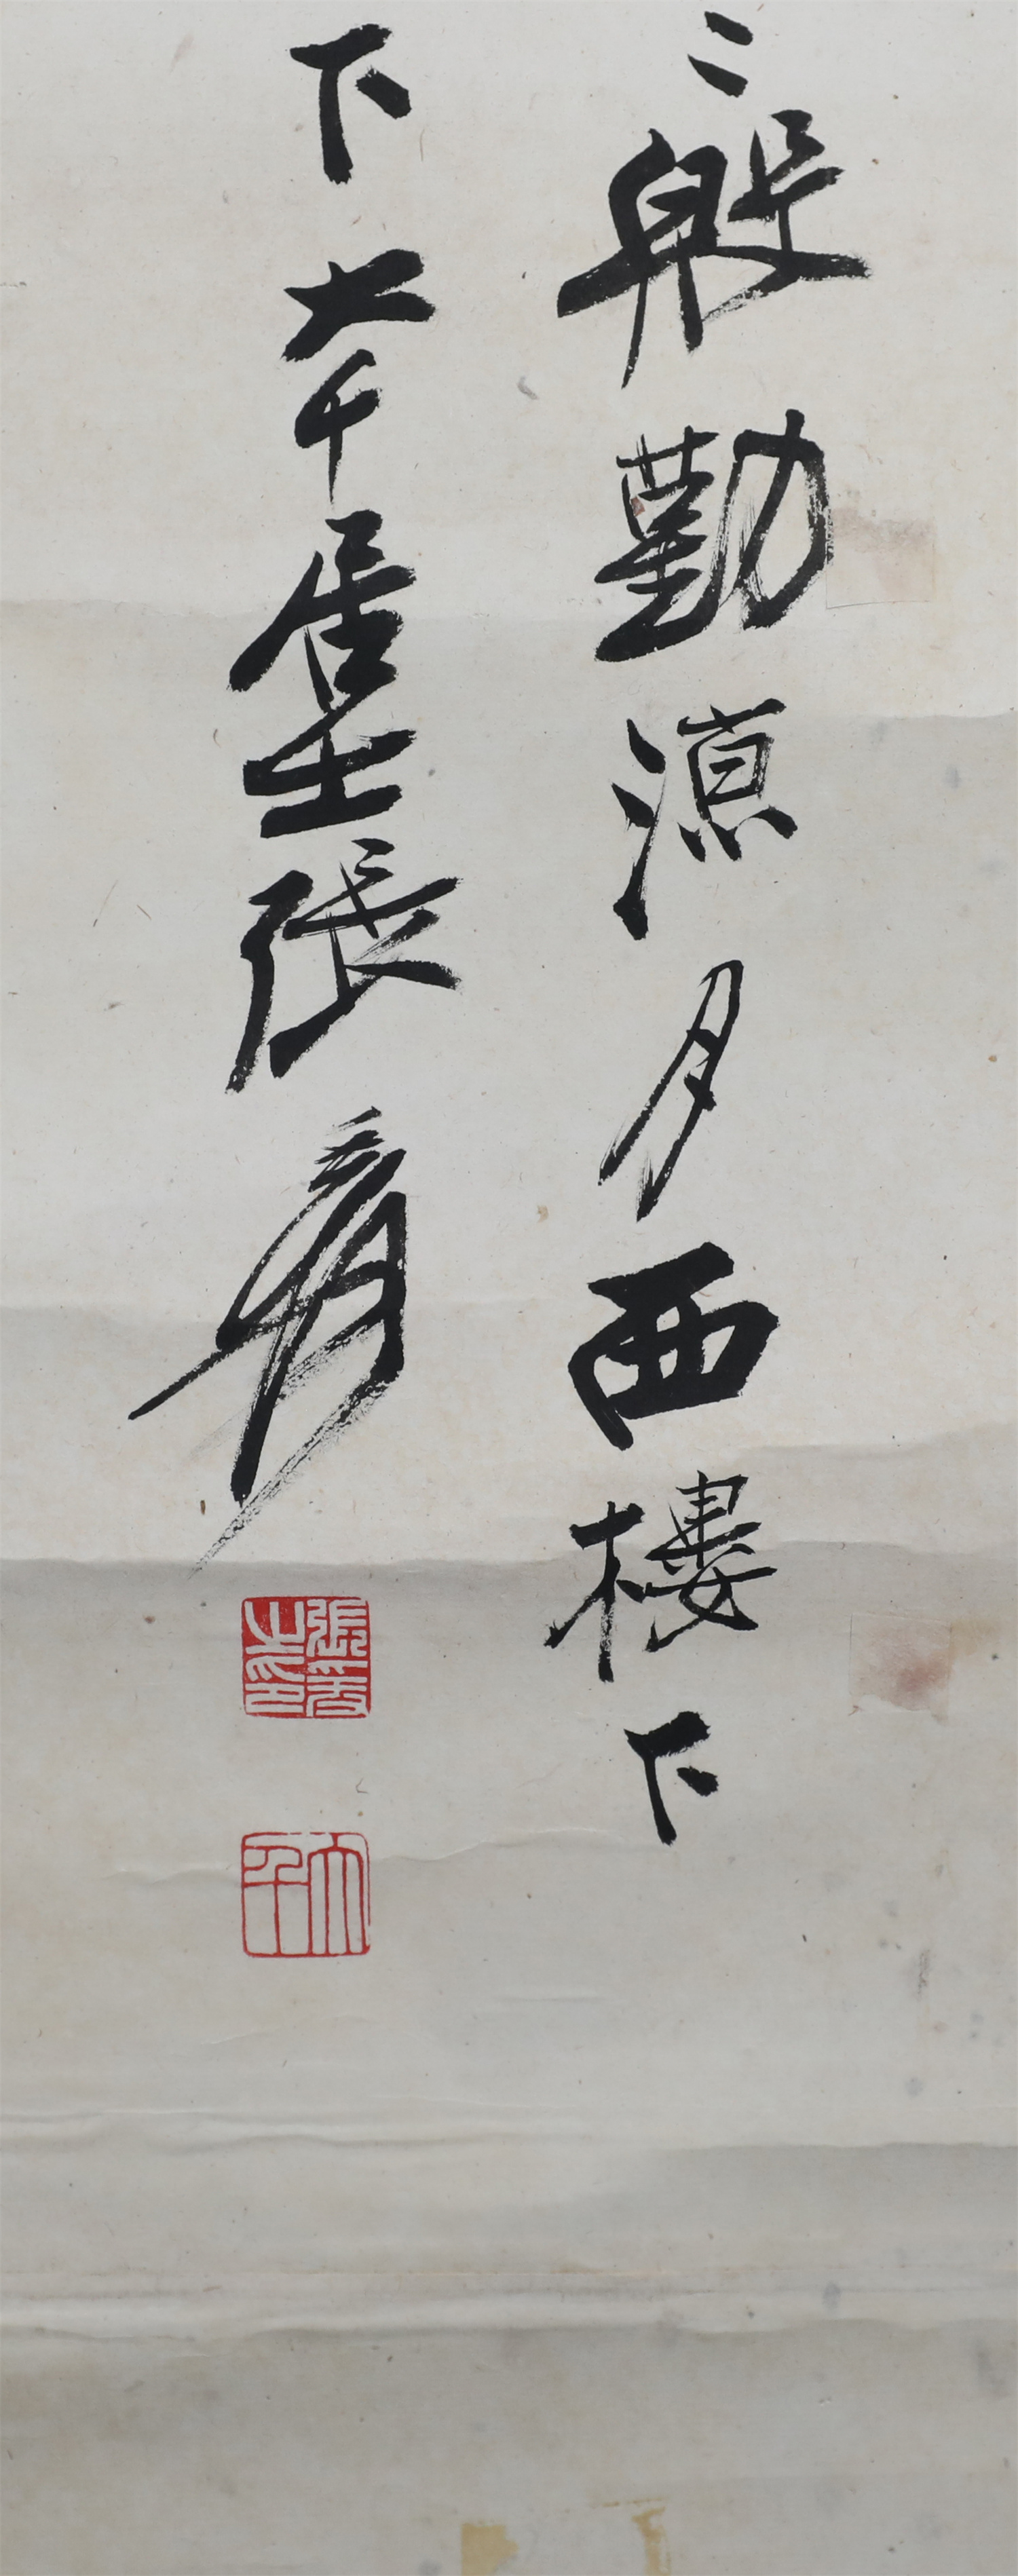 〻殷勤涼月西樓下
下大千居士張爰
張爰之印
大千